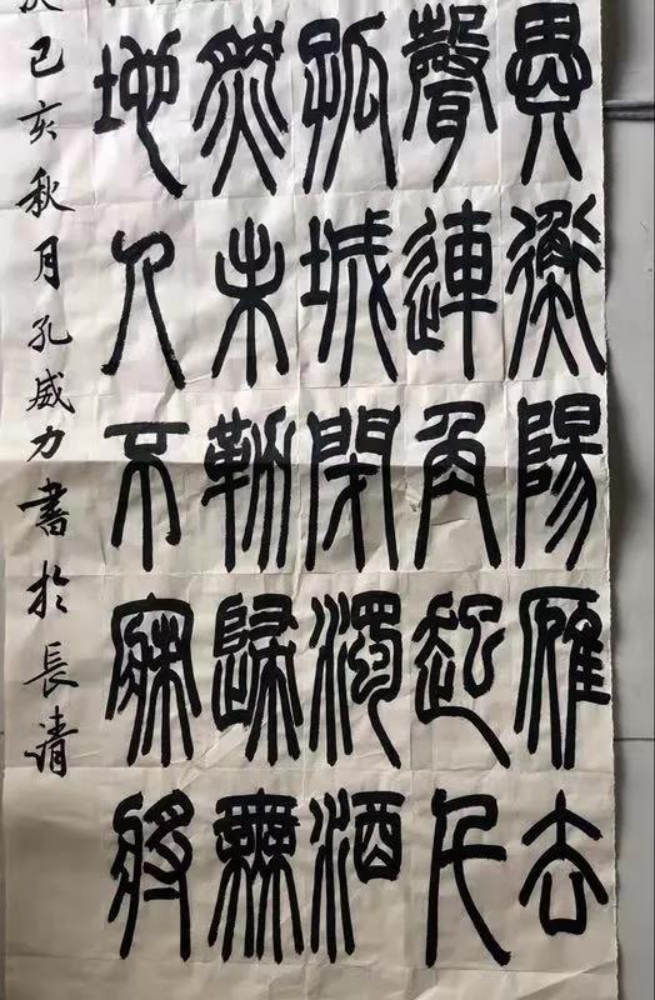 異衡陽雁去
聲連角起千
孤城閉濁酒
然未勒歸無
地人不寐將
己亥秋月孔威力書於長清